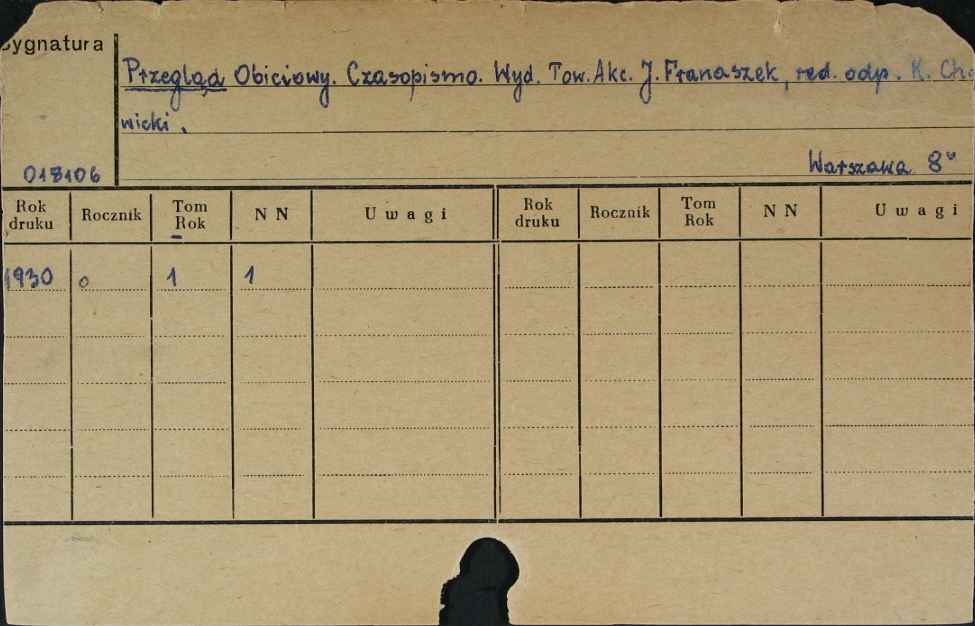 Sygnatura
Przegląd Obiciowy. Czasopismo. Wyd. Tow. Akc. J. Franaszek, red. odp. K. Cho
wicki.
018106
Warszawa 8°
Rok druku Rocznik Tom Rok N N Uwagi Rok druku Rocznik Tom Rok N N Uwagi
1930 o 1 1